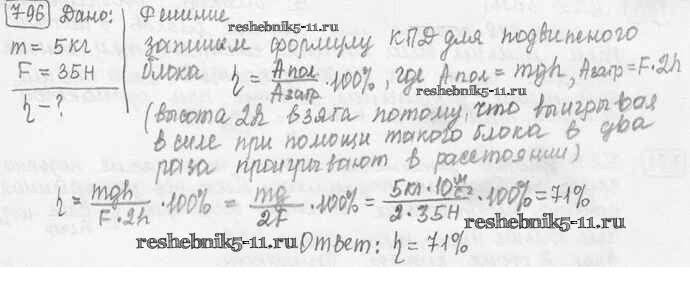 796 Дано: Решение
reshebnik5-11.ru
m = 5кг запишем формулу КПД для подвиженого
F = 35Н блока η = Aпол/Aзатр · 100%, где Aпол = mgh, Aзатр = F · 2h
reshebnik5-11.ru
η - ? (высота 2h взята потому, что выигрывая
в силе при помощи такого блока в два
раза проигрывают в расстоянии)
η = mgh/F · 2h · 100% = mg/2F · 100% = 5кг · 10 м/с²/2 · 35Н · 100% = 71%
reshebnik5-11.ru
reshebnik5-11.ru Ответ: η = 71%